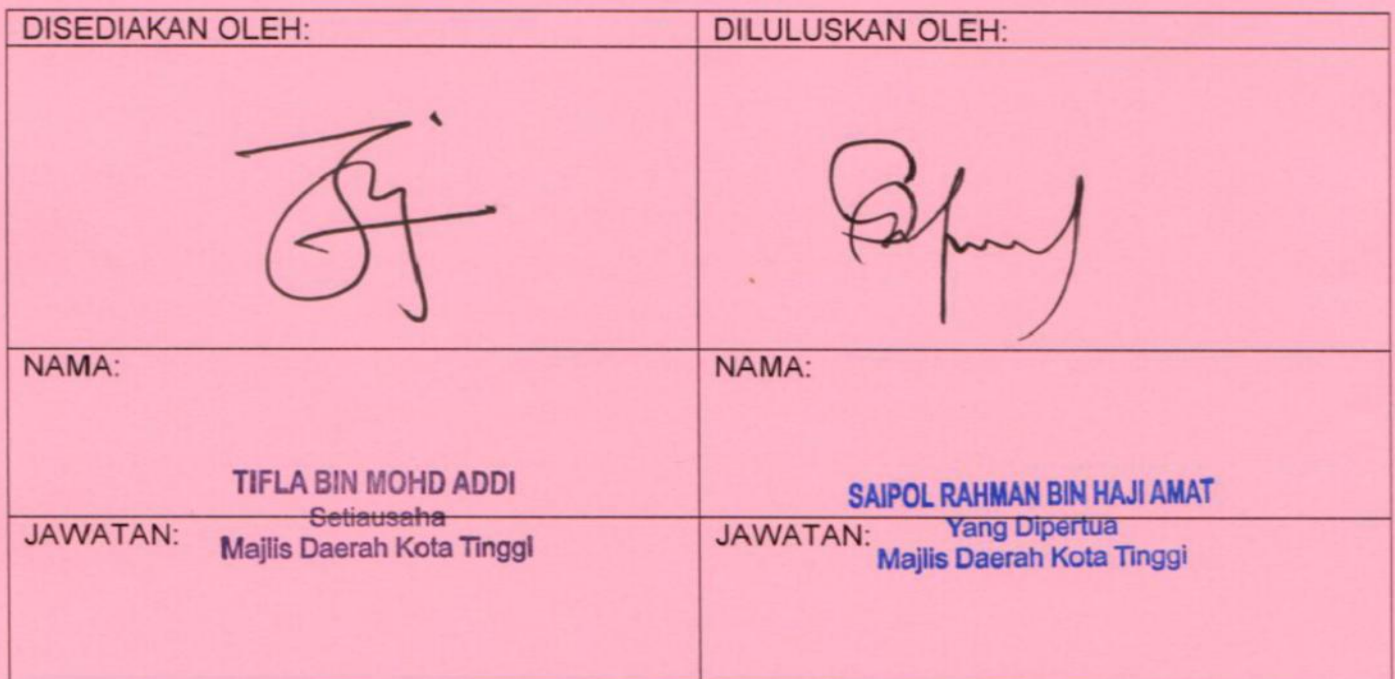 DISEDIAKAN OLEH:
DILULUSKAN OLEH:
NAMA:
TIFLA BIN MOHD ADDI
NAMA:
SAIPOL RAHMAN BIN HAJI AMAT
JAWATAN:
Setiausaha
Majlis Daerah Kota Tinggi
JAWATAN:
Yang Dipertua
Majlis Daerah Kota Tinggi